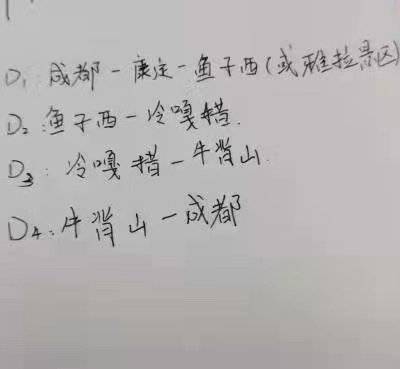 D1: 成都-康定-鱼子西(或雅拉景区)
D2: 鱼子西-冷嘎措.
D3: 冷嘎措-牛背山.
D4: 牛背山-成都